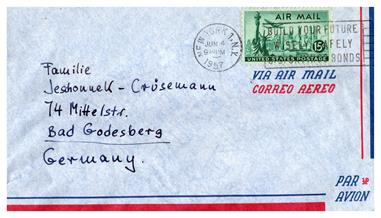 NEW YORK 1, N.Y.
JUN 4
1957
AIR MAIL
15¢
UNITED STATES POSTAGE
BUILD YOUR FUTURE
WISELY SAFELY
BONDS
VIA AIR MAIL
CORREO AEREO
Familie
Jeschonnek - Crüsemann
74 Mittelstr.
Bad Godesberg
Germany.
PAR
AVION